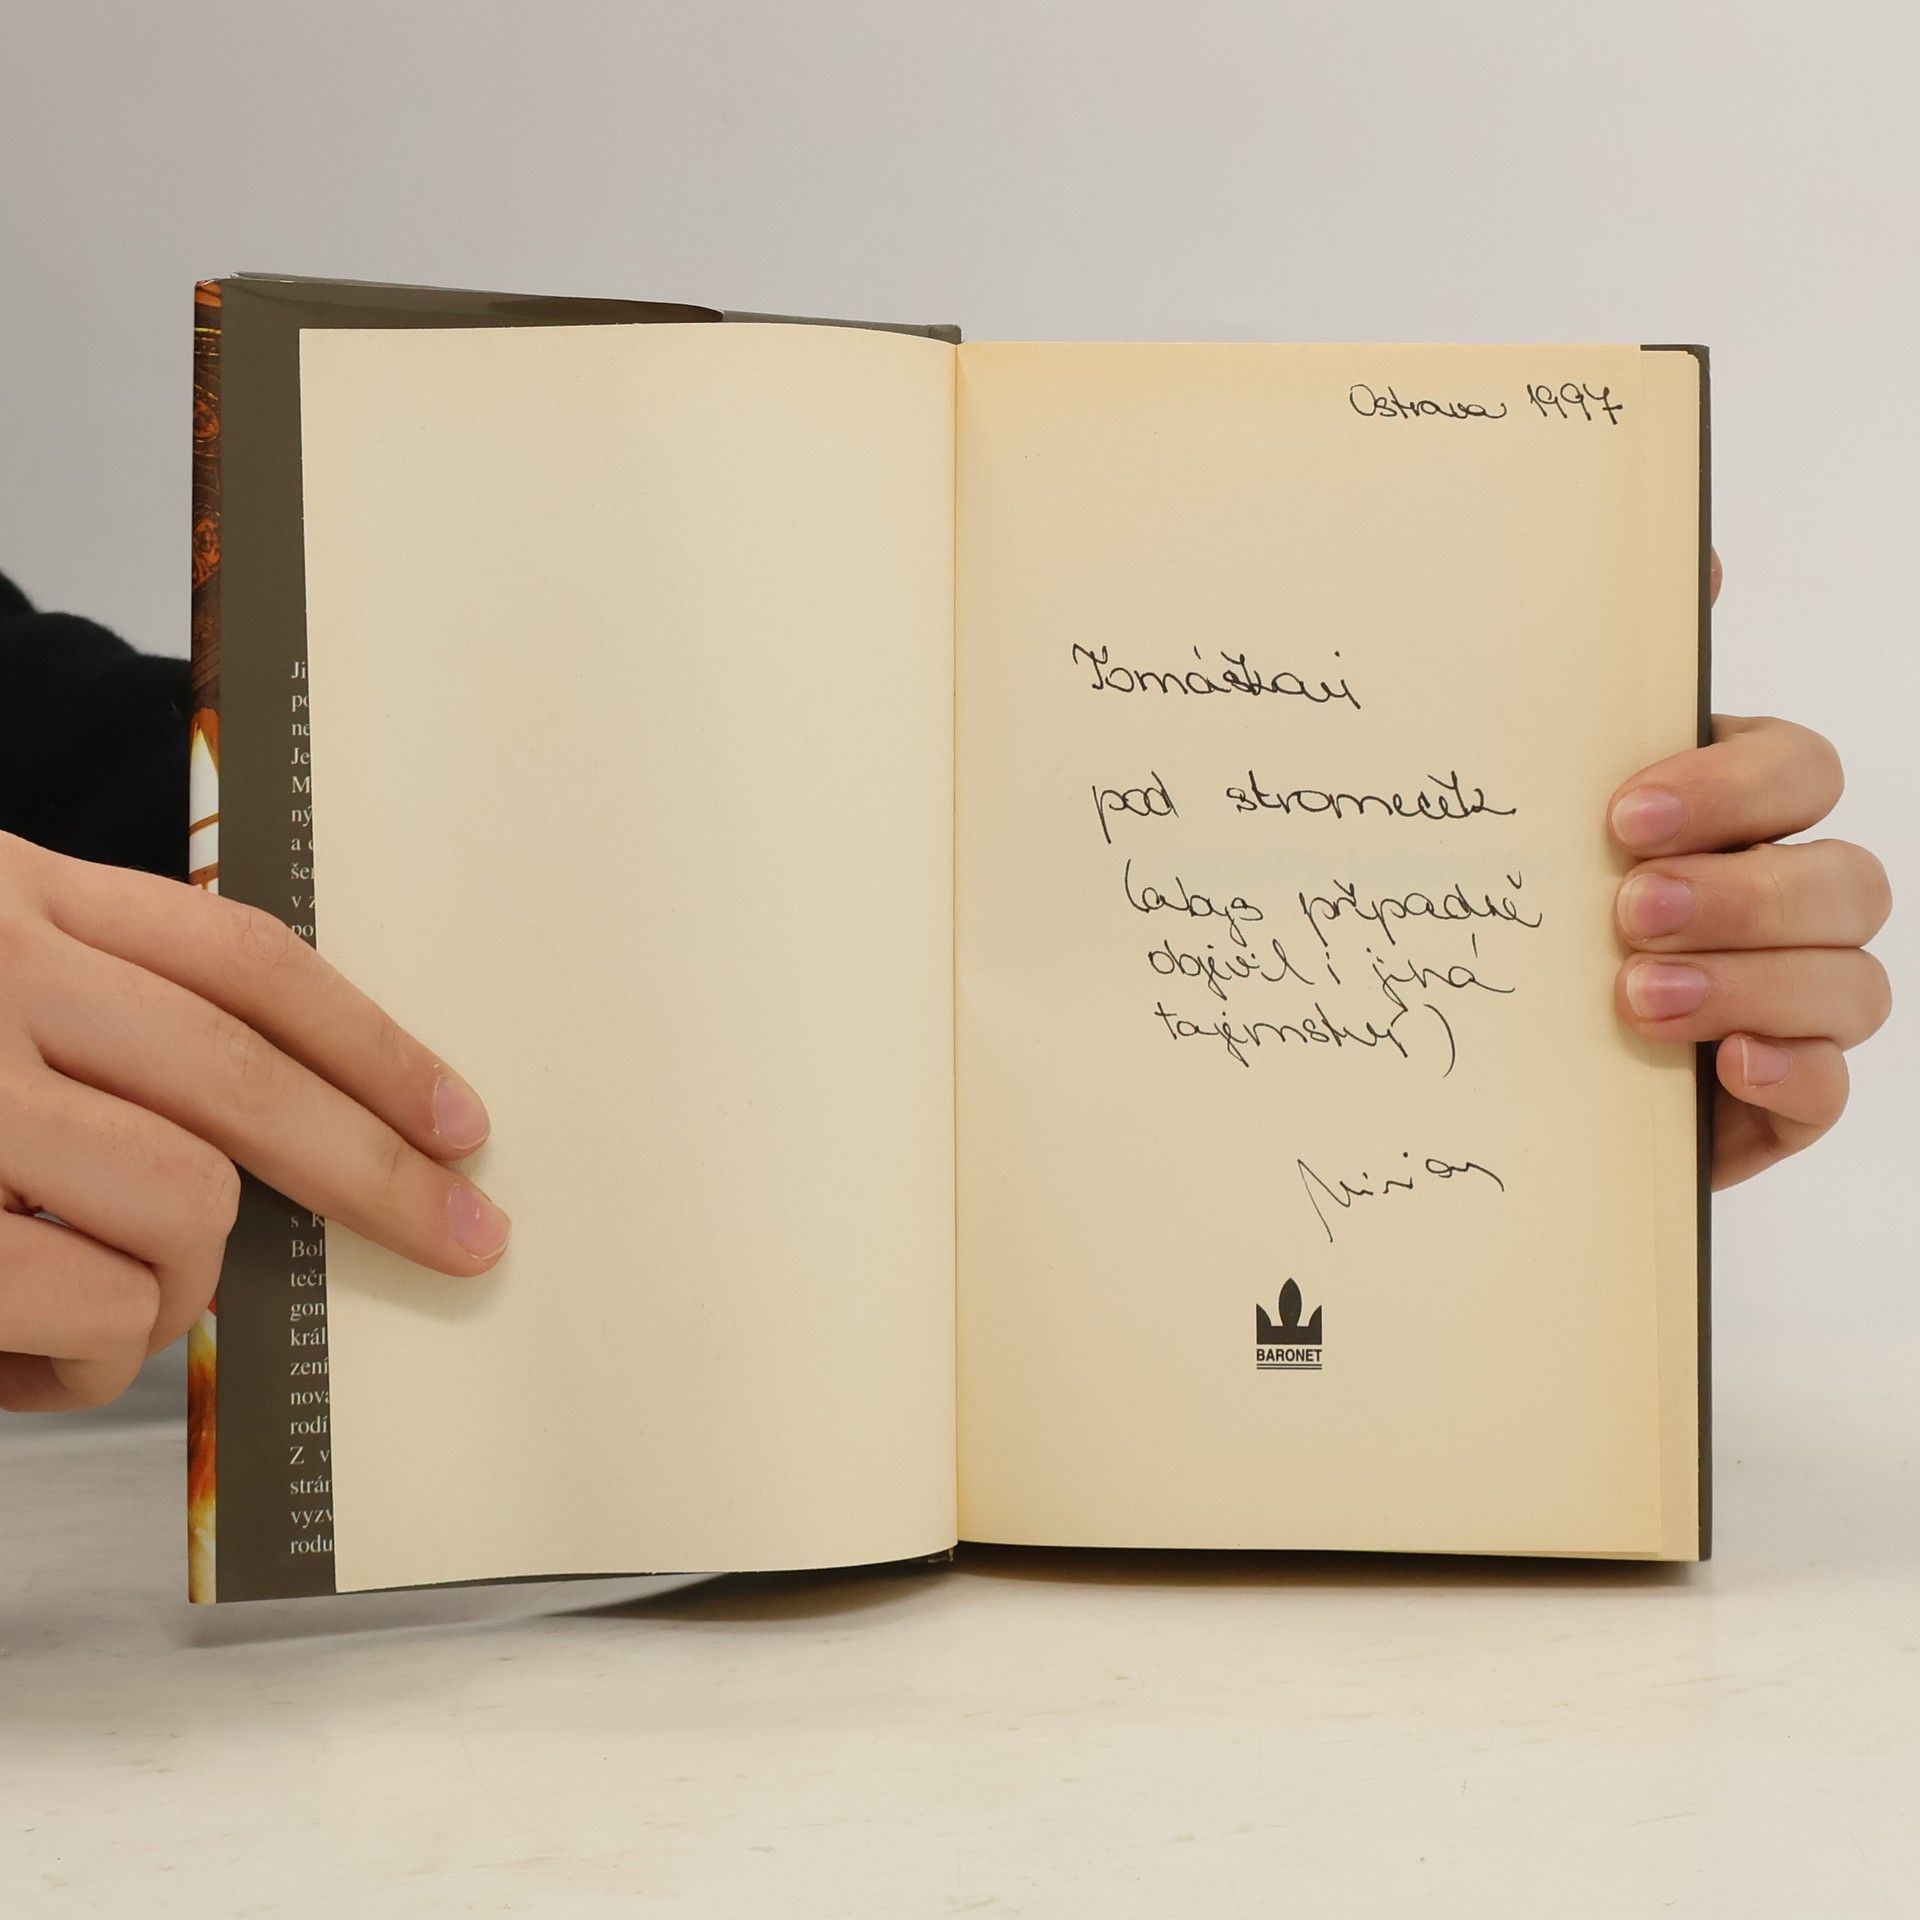 Ji
po
ne
Je
M
ný
a
še
v z
po
s K
Bol
tečn
gon
král
zení
nova
rodí
Z v
strán
vyzv
rodu
Ostrava 1997
Tomáškovi
pod stromeček
(abys případně
objevil i jiná
tajemství)
Miriam
BARONET